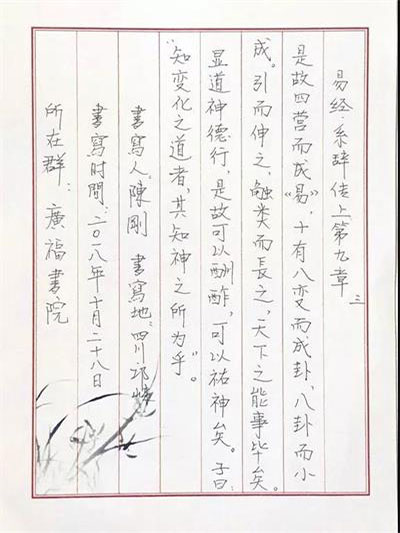 易经·系辞传上第九章 三
是故四营而成《易》，十有八变而成卦，八卦而小
成。引而伸之，触类而長之，天下之能事毕矣。
显道神德行，是故可以酬酢，可以祐神矣。子曰：
“知变化之道者，其知神之所为乎”。
書寫人：陳剛 書寫地：四川邛崃
書寫时間：二〇一八年十月二十八日
所在群：廣福書院